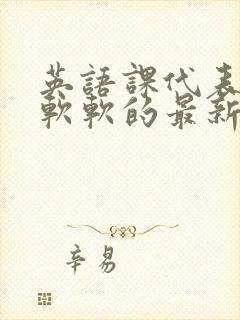 英語課代表
軟軟的最新
辛易